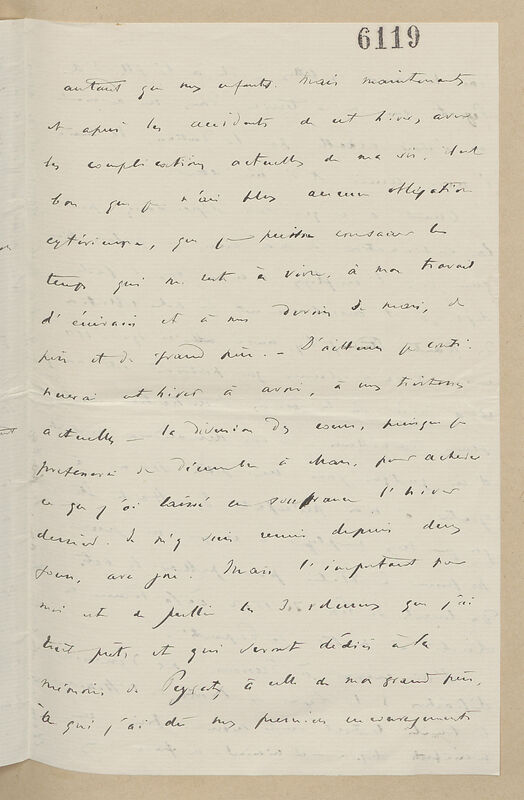 6119
autant que mes enfants. Mais maintenant
et après les accidents de cet hiver, avec
les complications actuelles de ma vie, il est
bon que je n'aie plus aucune obligation
extérieure, que je puisse consacrer le
temps qui me reste à vivre, à mon travail
d'écrivain et à mes devoirs de mari, de
père et de grand père. – D'ailleurs je conti-
nuerai cet hiver à avoir, à mes tristesses
actuelles – la diversion des cours, puisque je
professerai de décembre à Mars, pour achever
ce que j'ai laissé en souffrance l'hiver
dernier. Je m'y suis remis depuis deux
jours, avec joie. Mais l'important pour
moi est de publier les 3 volumes que j'ai
tout prêts et qui seront dédiés à la
mémoire de à celle de mon grand père,
à qui j'ai dû mes premiers encouragements